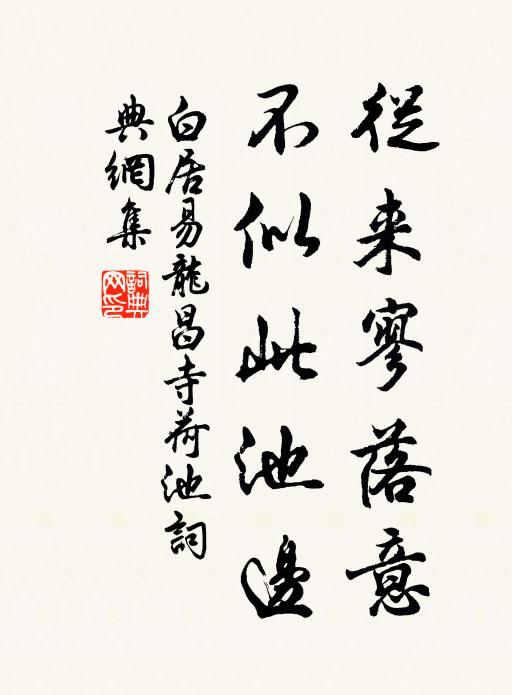 從来寥落意
不似此池邊
白居易龍昌寺荷池詞
典網集
詞典
网印